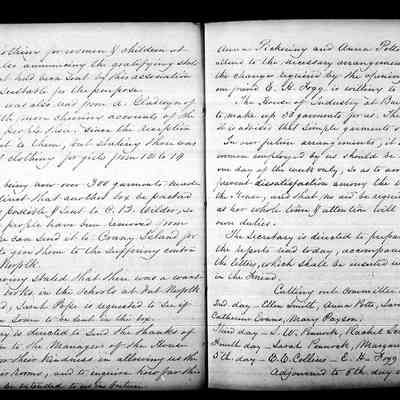 clothing for women & children at
also announcing the gratifying stat
had been sent by this association
suitable for the purpose.
was also read from A. Gladwyn of
more cheering accounts of the
people since the reception
sent to them, but stating there was
clothing for girls from 12 to 19
being now over 300 garments made
direct that another box be packed
possible & sent to C. B. Wilder, as
people have been removed from
can send it to Craney Island for
to give them to the suffering contra
Norfolk.
having stated that there was a want
books in the schools at Port Norfolk
Sarah Pope is requested to see if
some to be sent in the box.
is directed to send the thanks of
to the Managers of the House
for their kindness in allowing us the
Rooms, and to enquire how far this
be extended to us in future.
Anna Pickering and Anna Potts
attend to the necessary arrangement
the changes required by the opinion
our friend E. H. Fogg is willing to
The House of Industry at
to make up 30 garments for us. The
it is advised that simple garments
In our future arrangements, it
women employed by us should be
one day of the week only, so as to avoid
prevent dissatisfaction among the
the House, and that an aid be required
as her whole time & attention will
own duties.
The Secretary is directed to prepare
the report read today, accompanied
the letter, which shall be inserted
in the Friend.
Cutting out Committee
2nd day - Ellen Smith, Anna Potts, Sarah
Catherine Evans, Mary Payson.
Third day - S. W. Pennock, Rachel
Fourth day - Sarah Pennock, Margaret
5th day - E. C. Collins - E. H. Fogg
Adjourned to 6th day